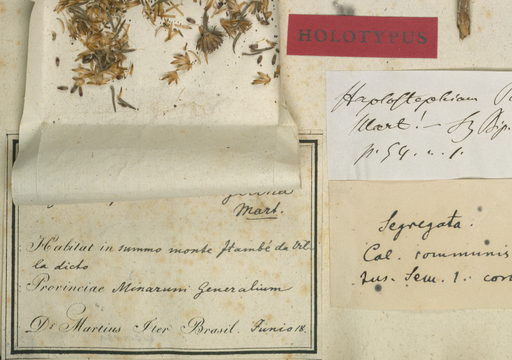 HOLOTYPUS
Haplostephium
Mart! — Sz Bip.
p. 54. n. 1.
Mart.
Habitat in summo monte Itambé da Vil-
la dicto
Provinciae Minarum Generalium
Dr Martius Iter Brasil. Junio 18.
Segregata.
Cal. communis
Sem. 1.